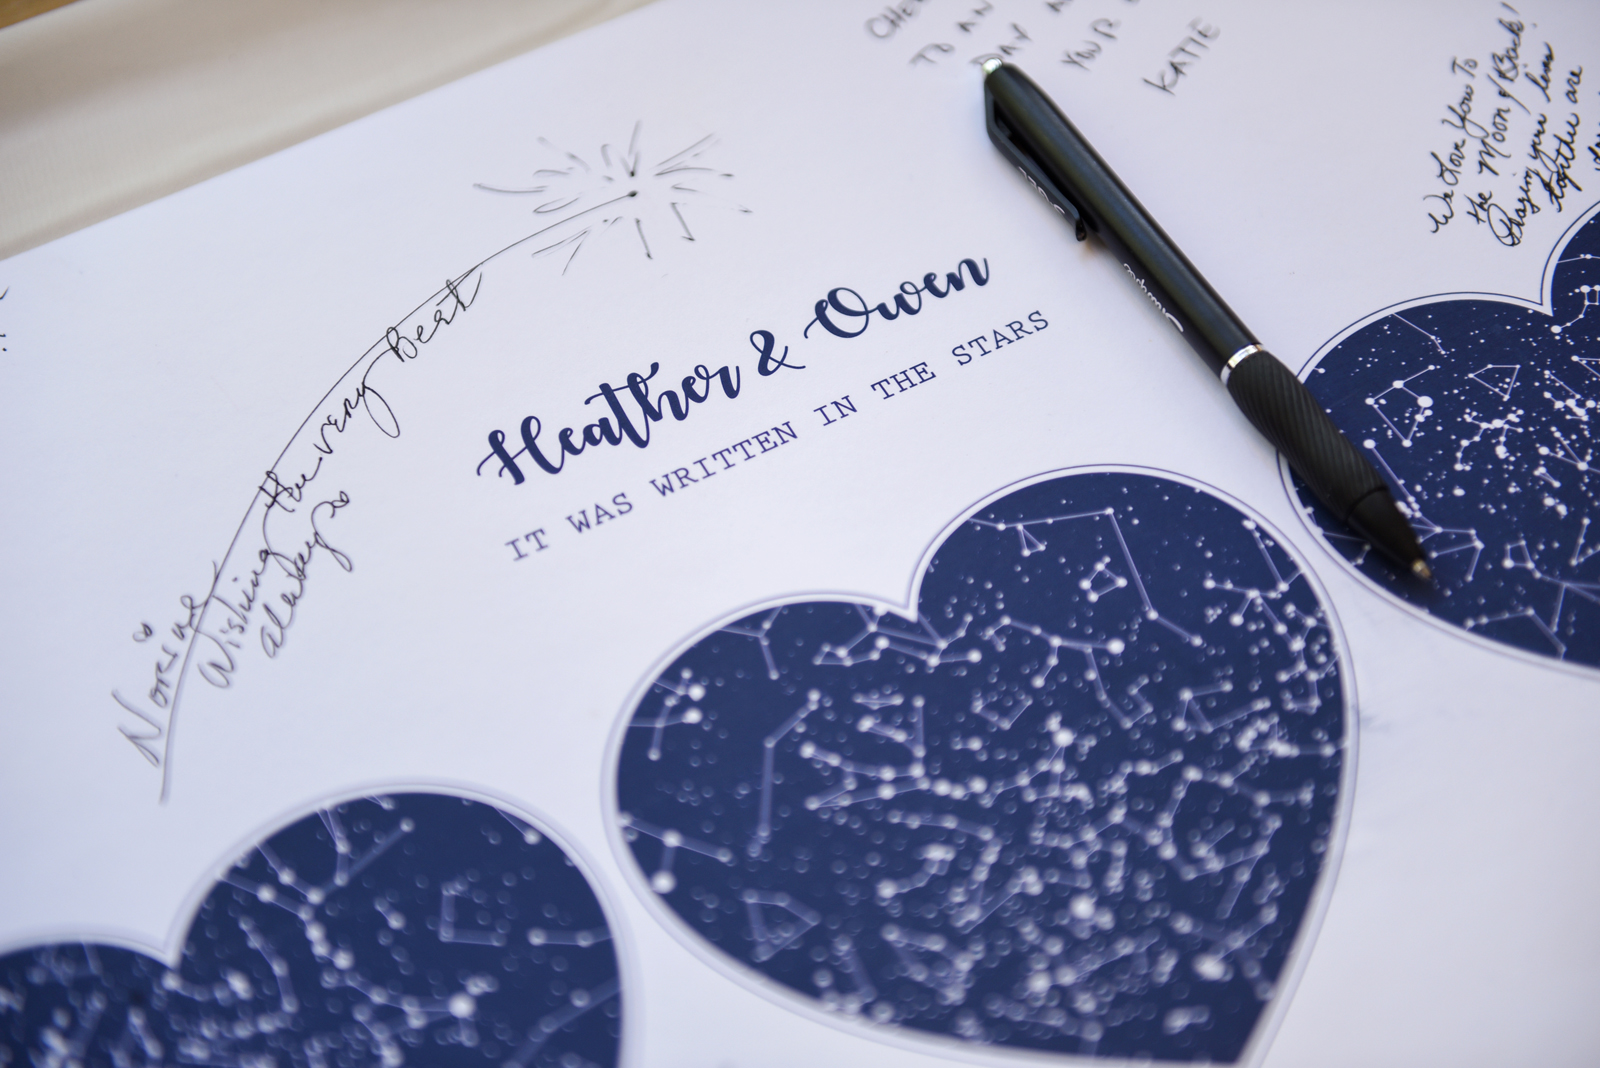 TO AN
DAY
YOUR
KATIE
We Love You To
the Moon & Back!
Praying your lives
together are
Norine
Wishing the very Best
always
Heather & Owen
IT WAS WRITTEN IN THE STARS
sharpie